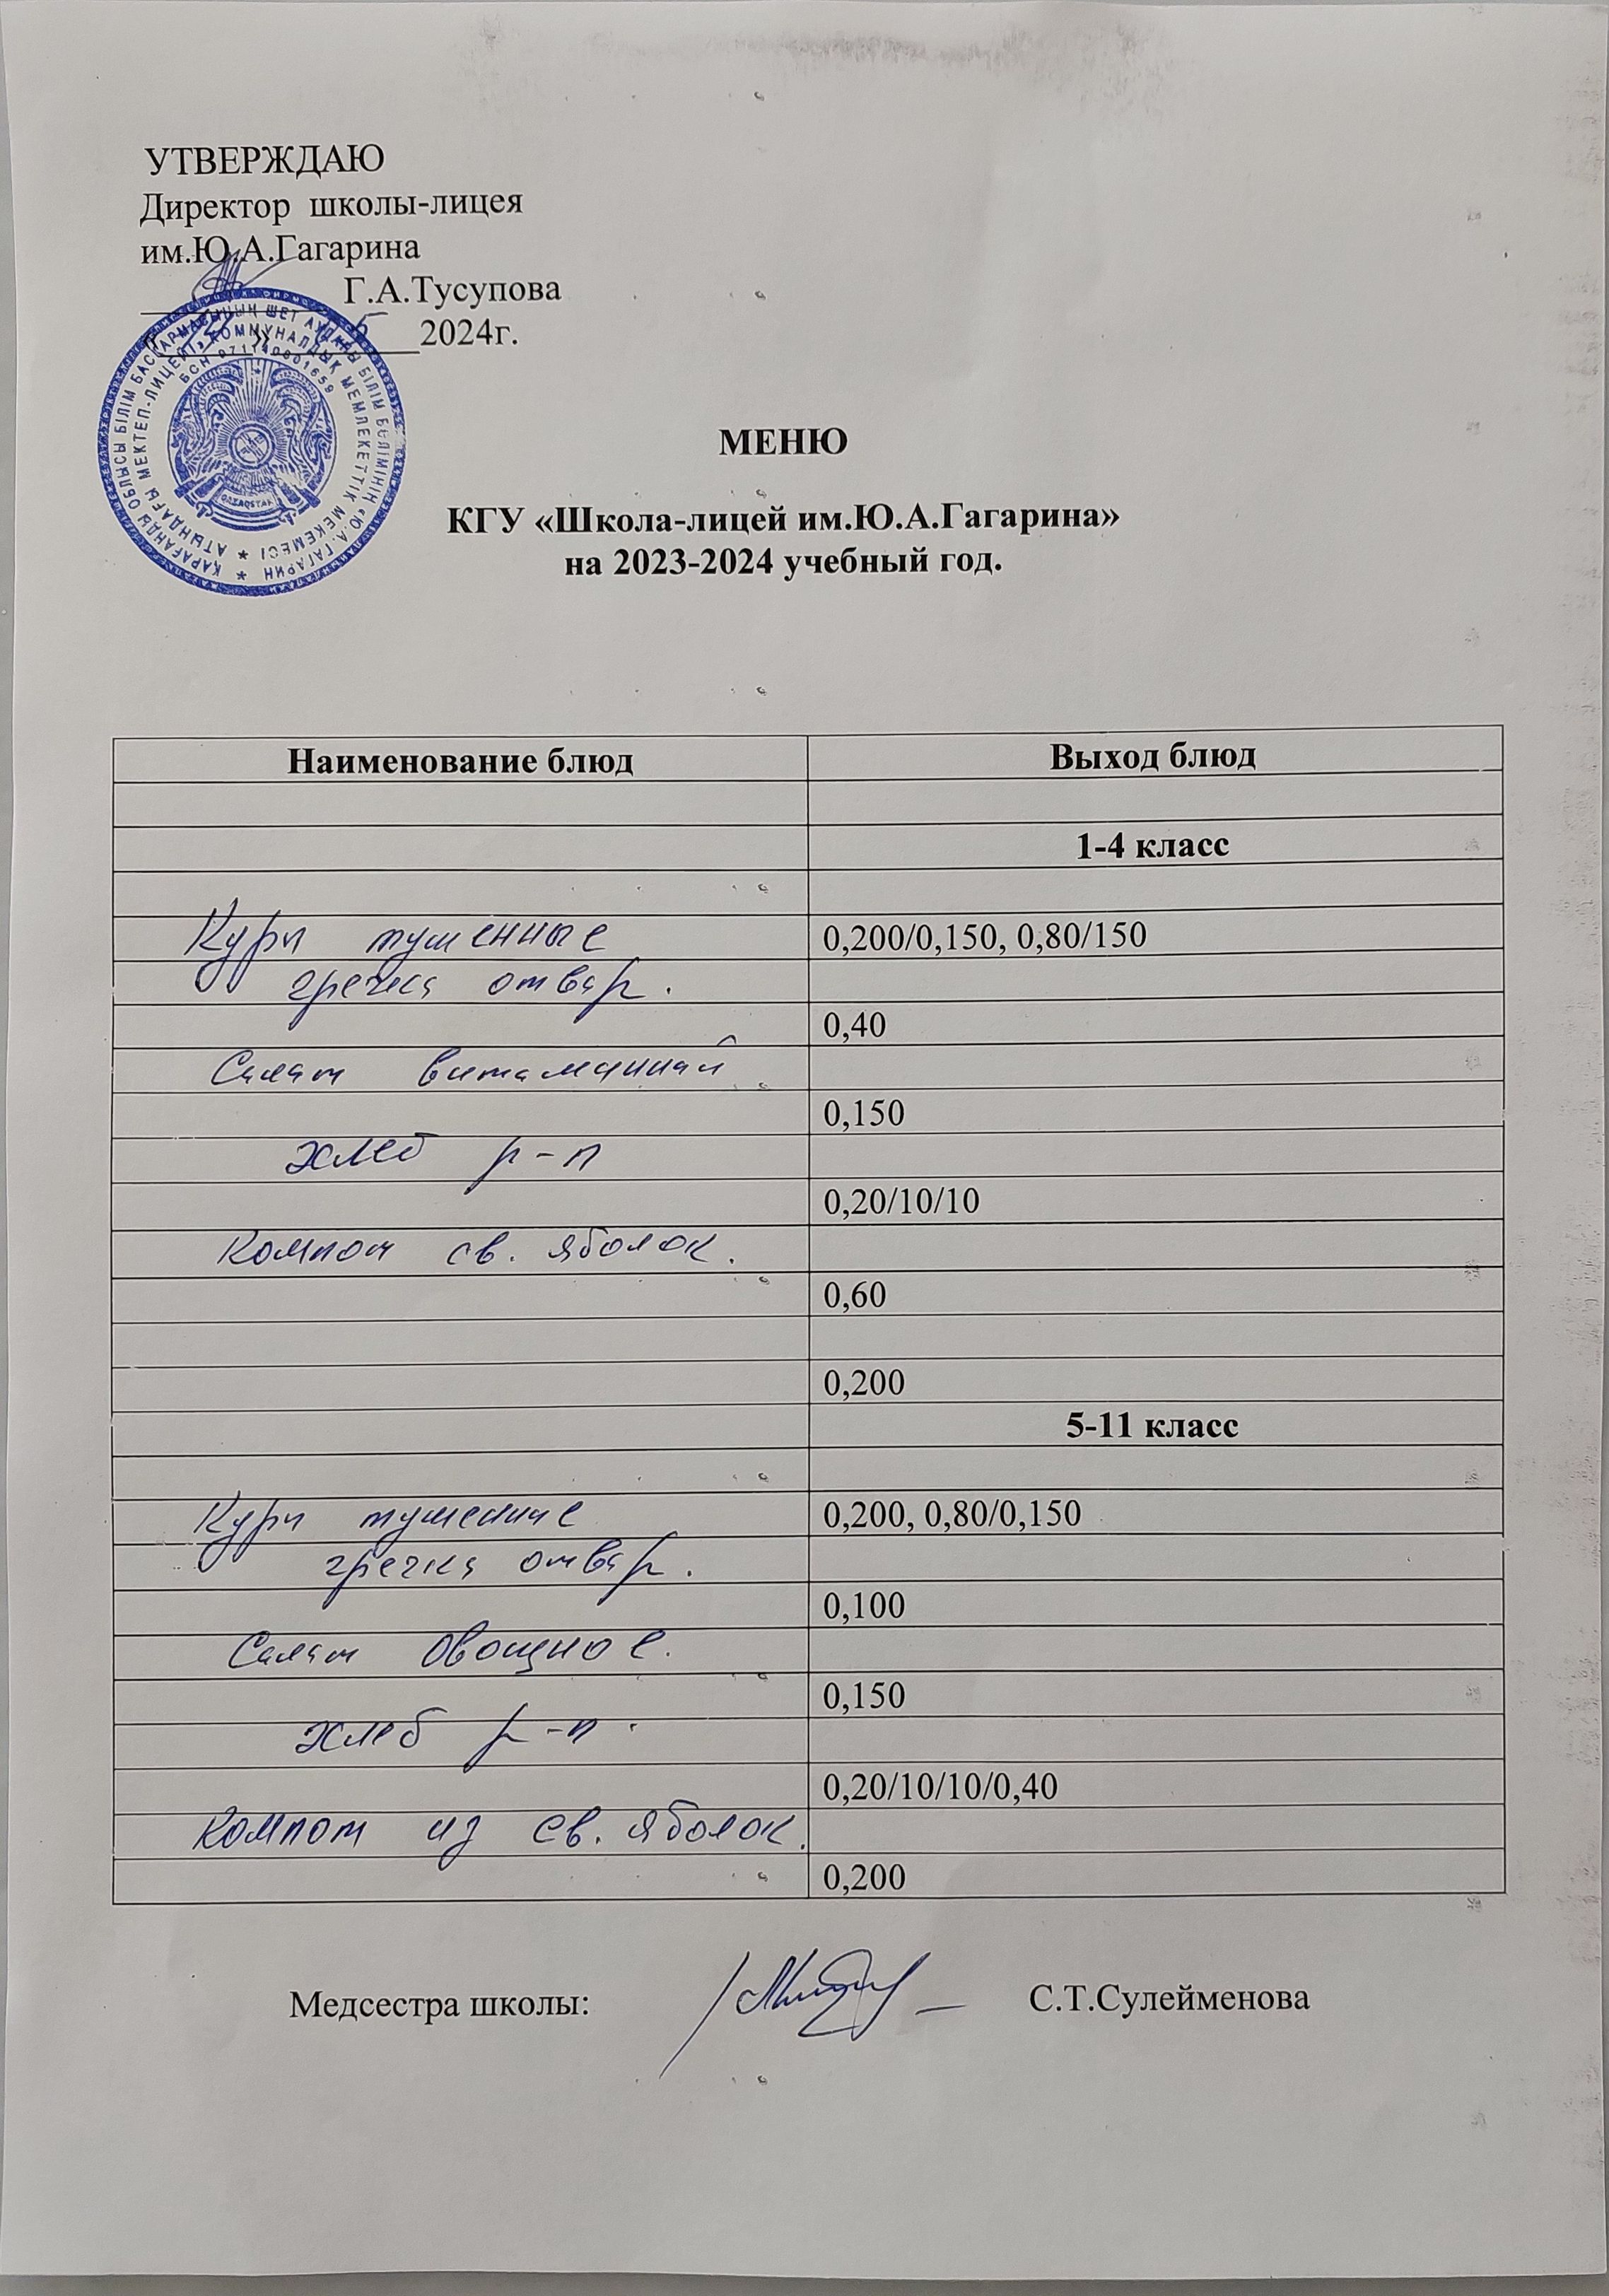 УТВЕРЖДАЮ
Директор школы-лицея
им.Ю.А.Гагарина
Г.А.Тусупова
2024г.
ҚАРАҒАНДЫ ОБЛЫСЫ БІЛІМ БАСҚАРМАСЫНЫҢ ШЕТ АУДАНЫ БІЛІМ БӨЛІМІНІҢ «Ю.А.ГАГАРИН
АТЫНДАҒЫ МЕКТЕП-ЛИЦЕЙІ» КОММУНАЛДЫҚ МЕМЛЕКЕТТІК МЕКЕМЕСІ
БСН 971140001659
QAZAQSTAN
МЕНЮ
КГУ «Школа-лицей им.Ю.А.Гагарина»
на 2023-2024 учебный год.
Наименование блюд Выход блюд
1-4 класс
Куры тушенные 0,200/0,150, 0,80/150
гречка отвар.
0,40
Салат витаминный
0,150
хлеб р-п
0,20/10/10
Компот св. яболок.
0,60
0,200
5-11 класс
Куры тушенные 0,200, 0,80/0,150
гречка отвар.
0,100
Салат овощное.
0,150
хлеб р-п.
0,20/10/10/0,40
Компот из св. яболок.
0,200
Медсестра школы: С.Т.Сулейменова